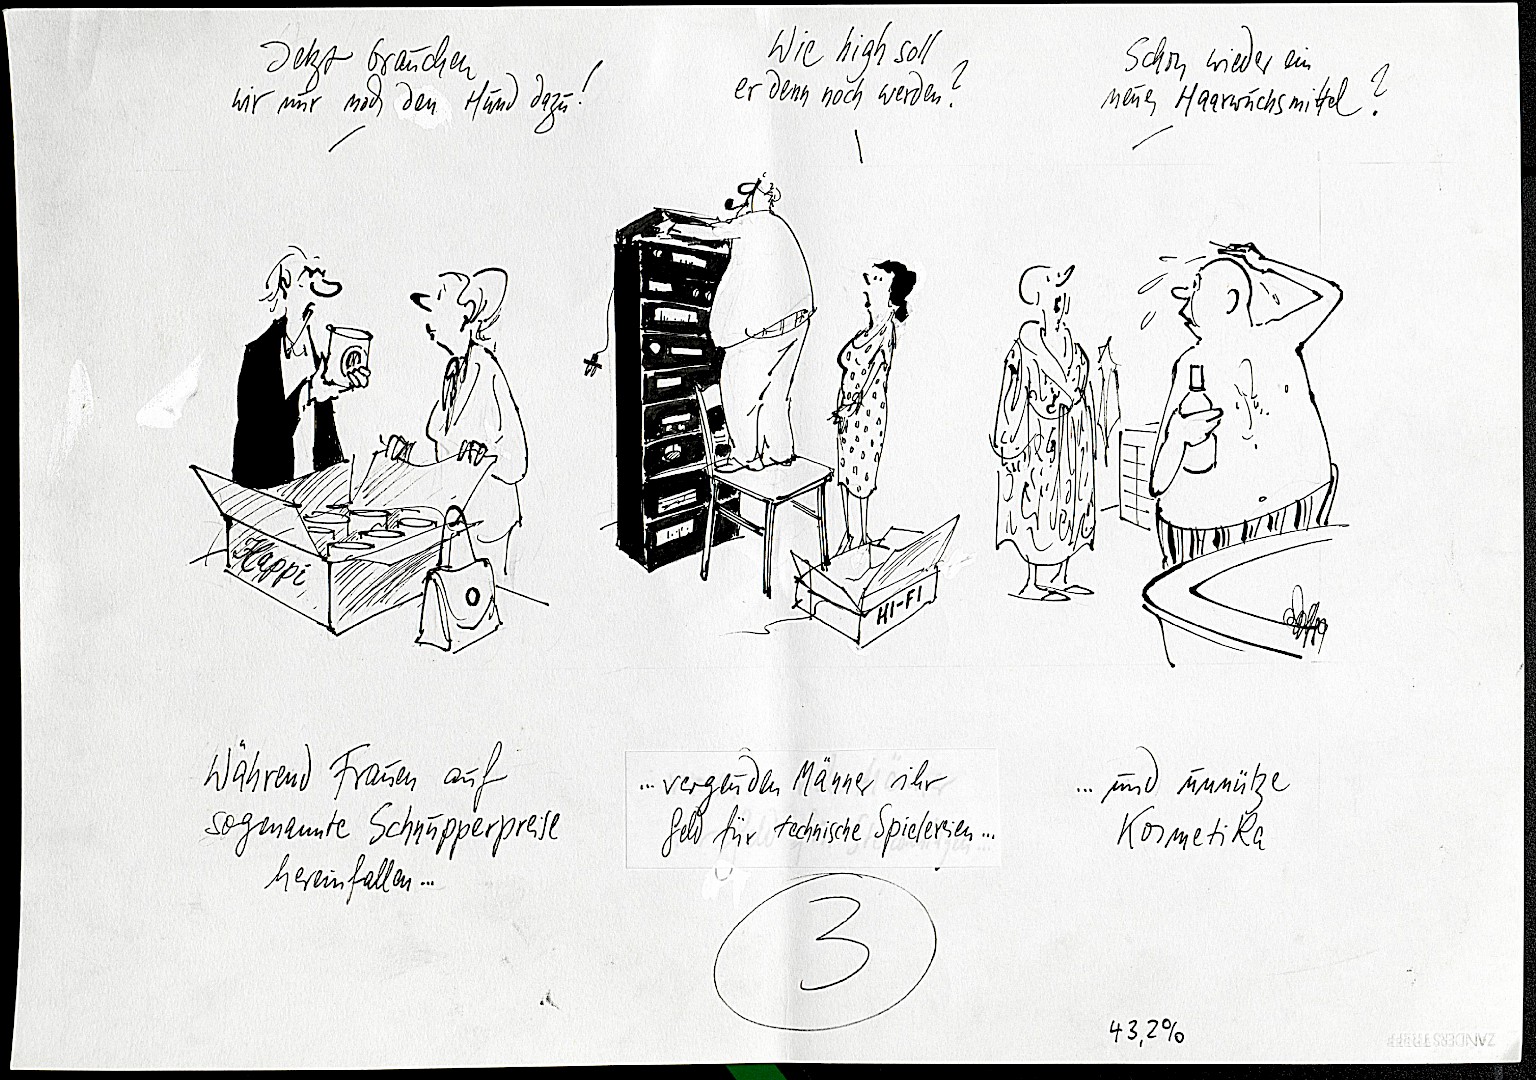 Jetzt brauchen
wir nur noch den Hund dazu!
Wie high soll
er denn noch werden?
Schon wieder ein
neues Haarwuchsmittel?
Happi
HI-FI
Während Frauen auf
sogenannte Schnupperpreise
hereinfallen...
...vergeuden Männer ihr
Geld für technische Spielereien...
...und unnütze
Kosmetika
3
43,2%